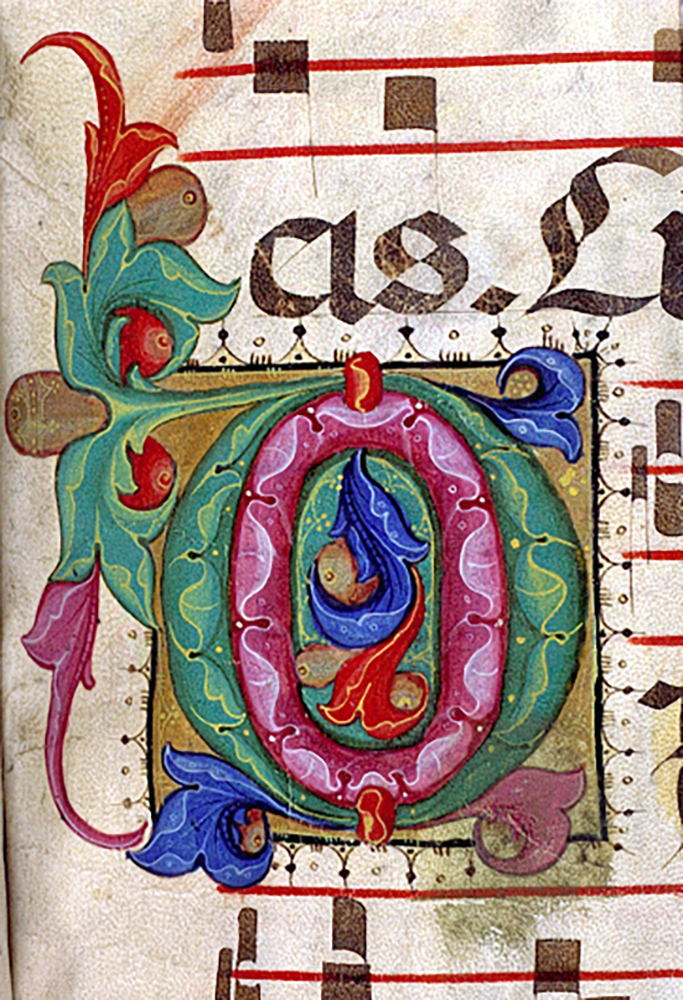 as. Lu
O